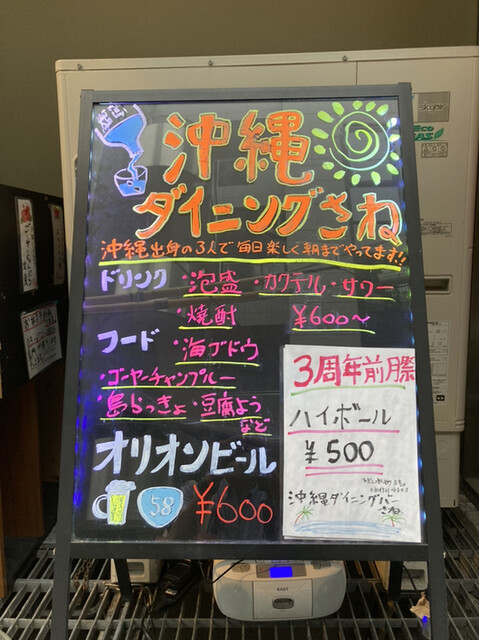 沖縄
ダイニングさね
沖縄出身の3人で毎日楽しく朝までやってます!!
ドリンク ・泡盛 ・カクテル・サワー
・焼酎 ¥600~
フード ・海ブドウ
・ゴーヤーチャンプルー
・島らっきょ・豆腐よう
など
オリオンビール
58 ¥600
3周年前月祭
ハイボール
¥500
沖縄ダイニングバー
さね
EAST